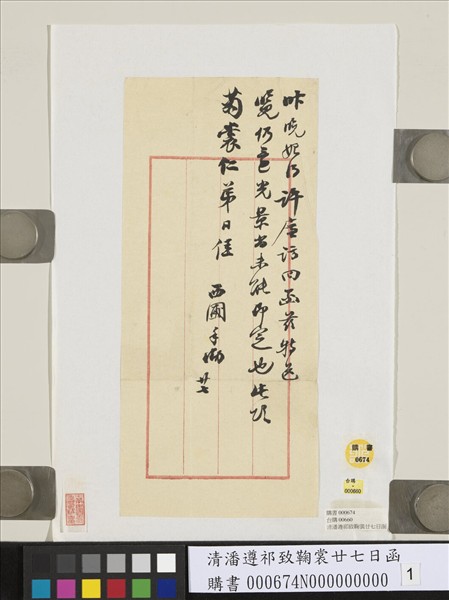 昨晚始得許
回函茲特送
覽仍
光景尚未能即定也此頌
菊裳仁弟日佳
西圃手
廿七
購書
0674
台購
000660
購書 000674
台購 00660
清潘遵祁致鞠裳廿七日函
清潘遵祁致鞠裳廿七日函
購書 000674N000000000
1